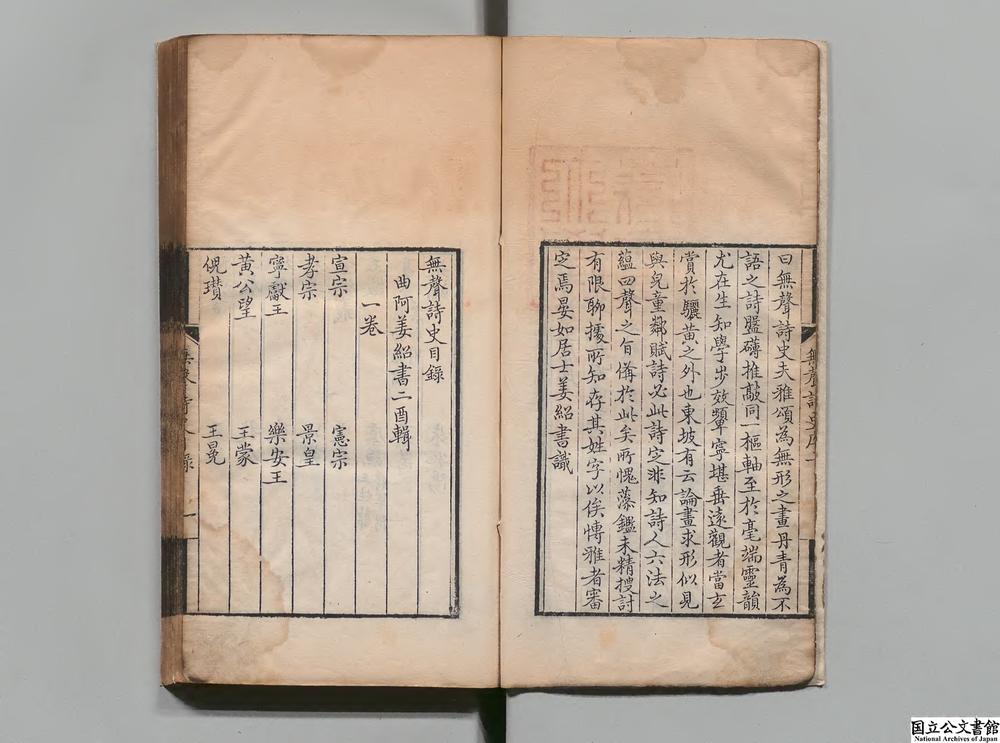 曰無聲詩史夫雅頌為無形之畫丹青為不
語之詩盤礴推敲同一樞軸至於毫端靈韻
尤在生知學步效顰寧堪垂遠觀者當玄
賞於驪黃之外也東坡有云論畫求形似見
與兒童鄰賦詩必此詩定非知詩人六法之
蘊四聲之旨備於此矣所愧藻鑑未精搜討
有限聊據所知存其姓字以俟博雅者審
定焉晏如居士姜紹書識
無聲詩史目錄
曲阿姜紹書二酉輯
一卷
宣宗 憲宗
孝宗 景皇
寧獻王 樂安王
黃公望 王蒙
倪瓚 王冕
国立公文書館
National Archives of Japan